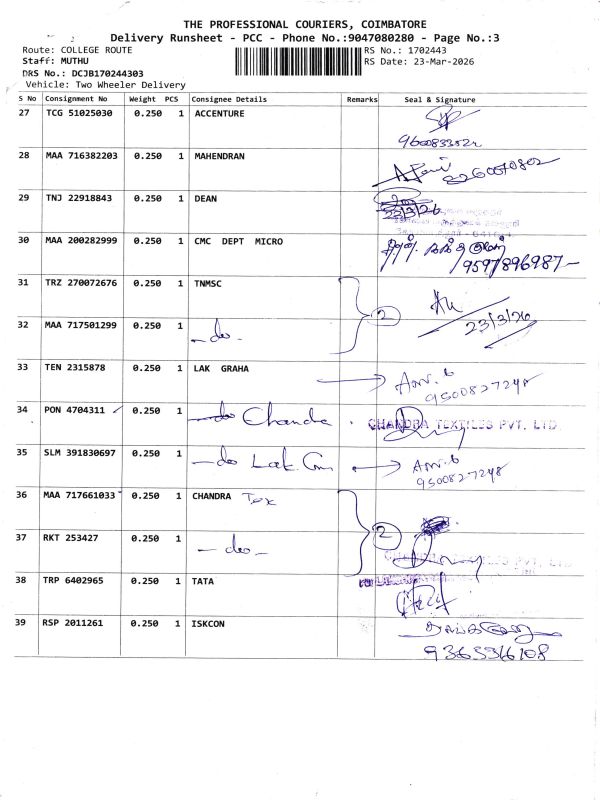 THE PROFESSIONAL COURIERS, COIMBATORE
Delivery Runsheet - PCC - Phone No.:9047080280 - Page No.:3
Route: COLLEGE ROUTE
RS No.: 1702443
Staff: MUTHU
RS Date: 23-Mar-2026
DRS No.: DCJB170244303
Vehicle: Two Wheeler Delivery
S No Consignment No Weight PCS Consignee Details Remarks Seal & Signature
27 TCG 51025030 0.250 1 ACCENTURE
28 MAA 716382203 0.250 1 MAHENDRAN
29 TNJ 22918843 0.250 1 DEAN 23/3/26
30 MAA 200282999 0.250 1 CMC DEPT MICRO
9597896987
31 TRZ 270072676 0.250 1 TNMSC
2
23/3/26
32 MAA 717501299 0.250 1 - do -
33 TEN 2315878 0.250 1 LAK GRAHA
9500827248
34 PON 4704311 0.250 1 do Chanda CHANDRA TEXTILES PVT. LTD.
35 SLM 391830697 0.250 1 - do Lak
9500827248
36 MAA 717661033 0.250 1 CHANDRA Tex
2
37 RKT 253427 0.250 1 - do -
38 TRP 6402965 0.250 1 TATA
39 RSP 2011261 0.250 1 ISKCON